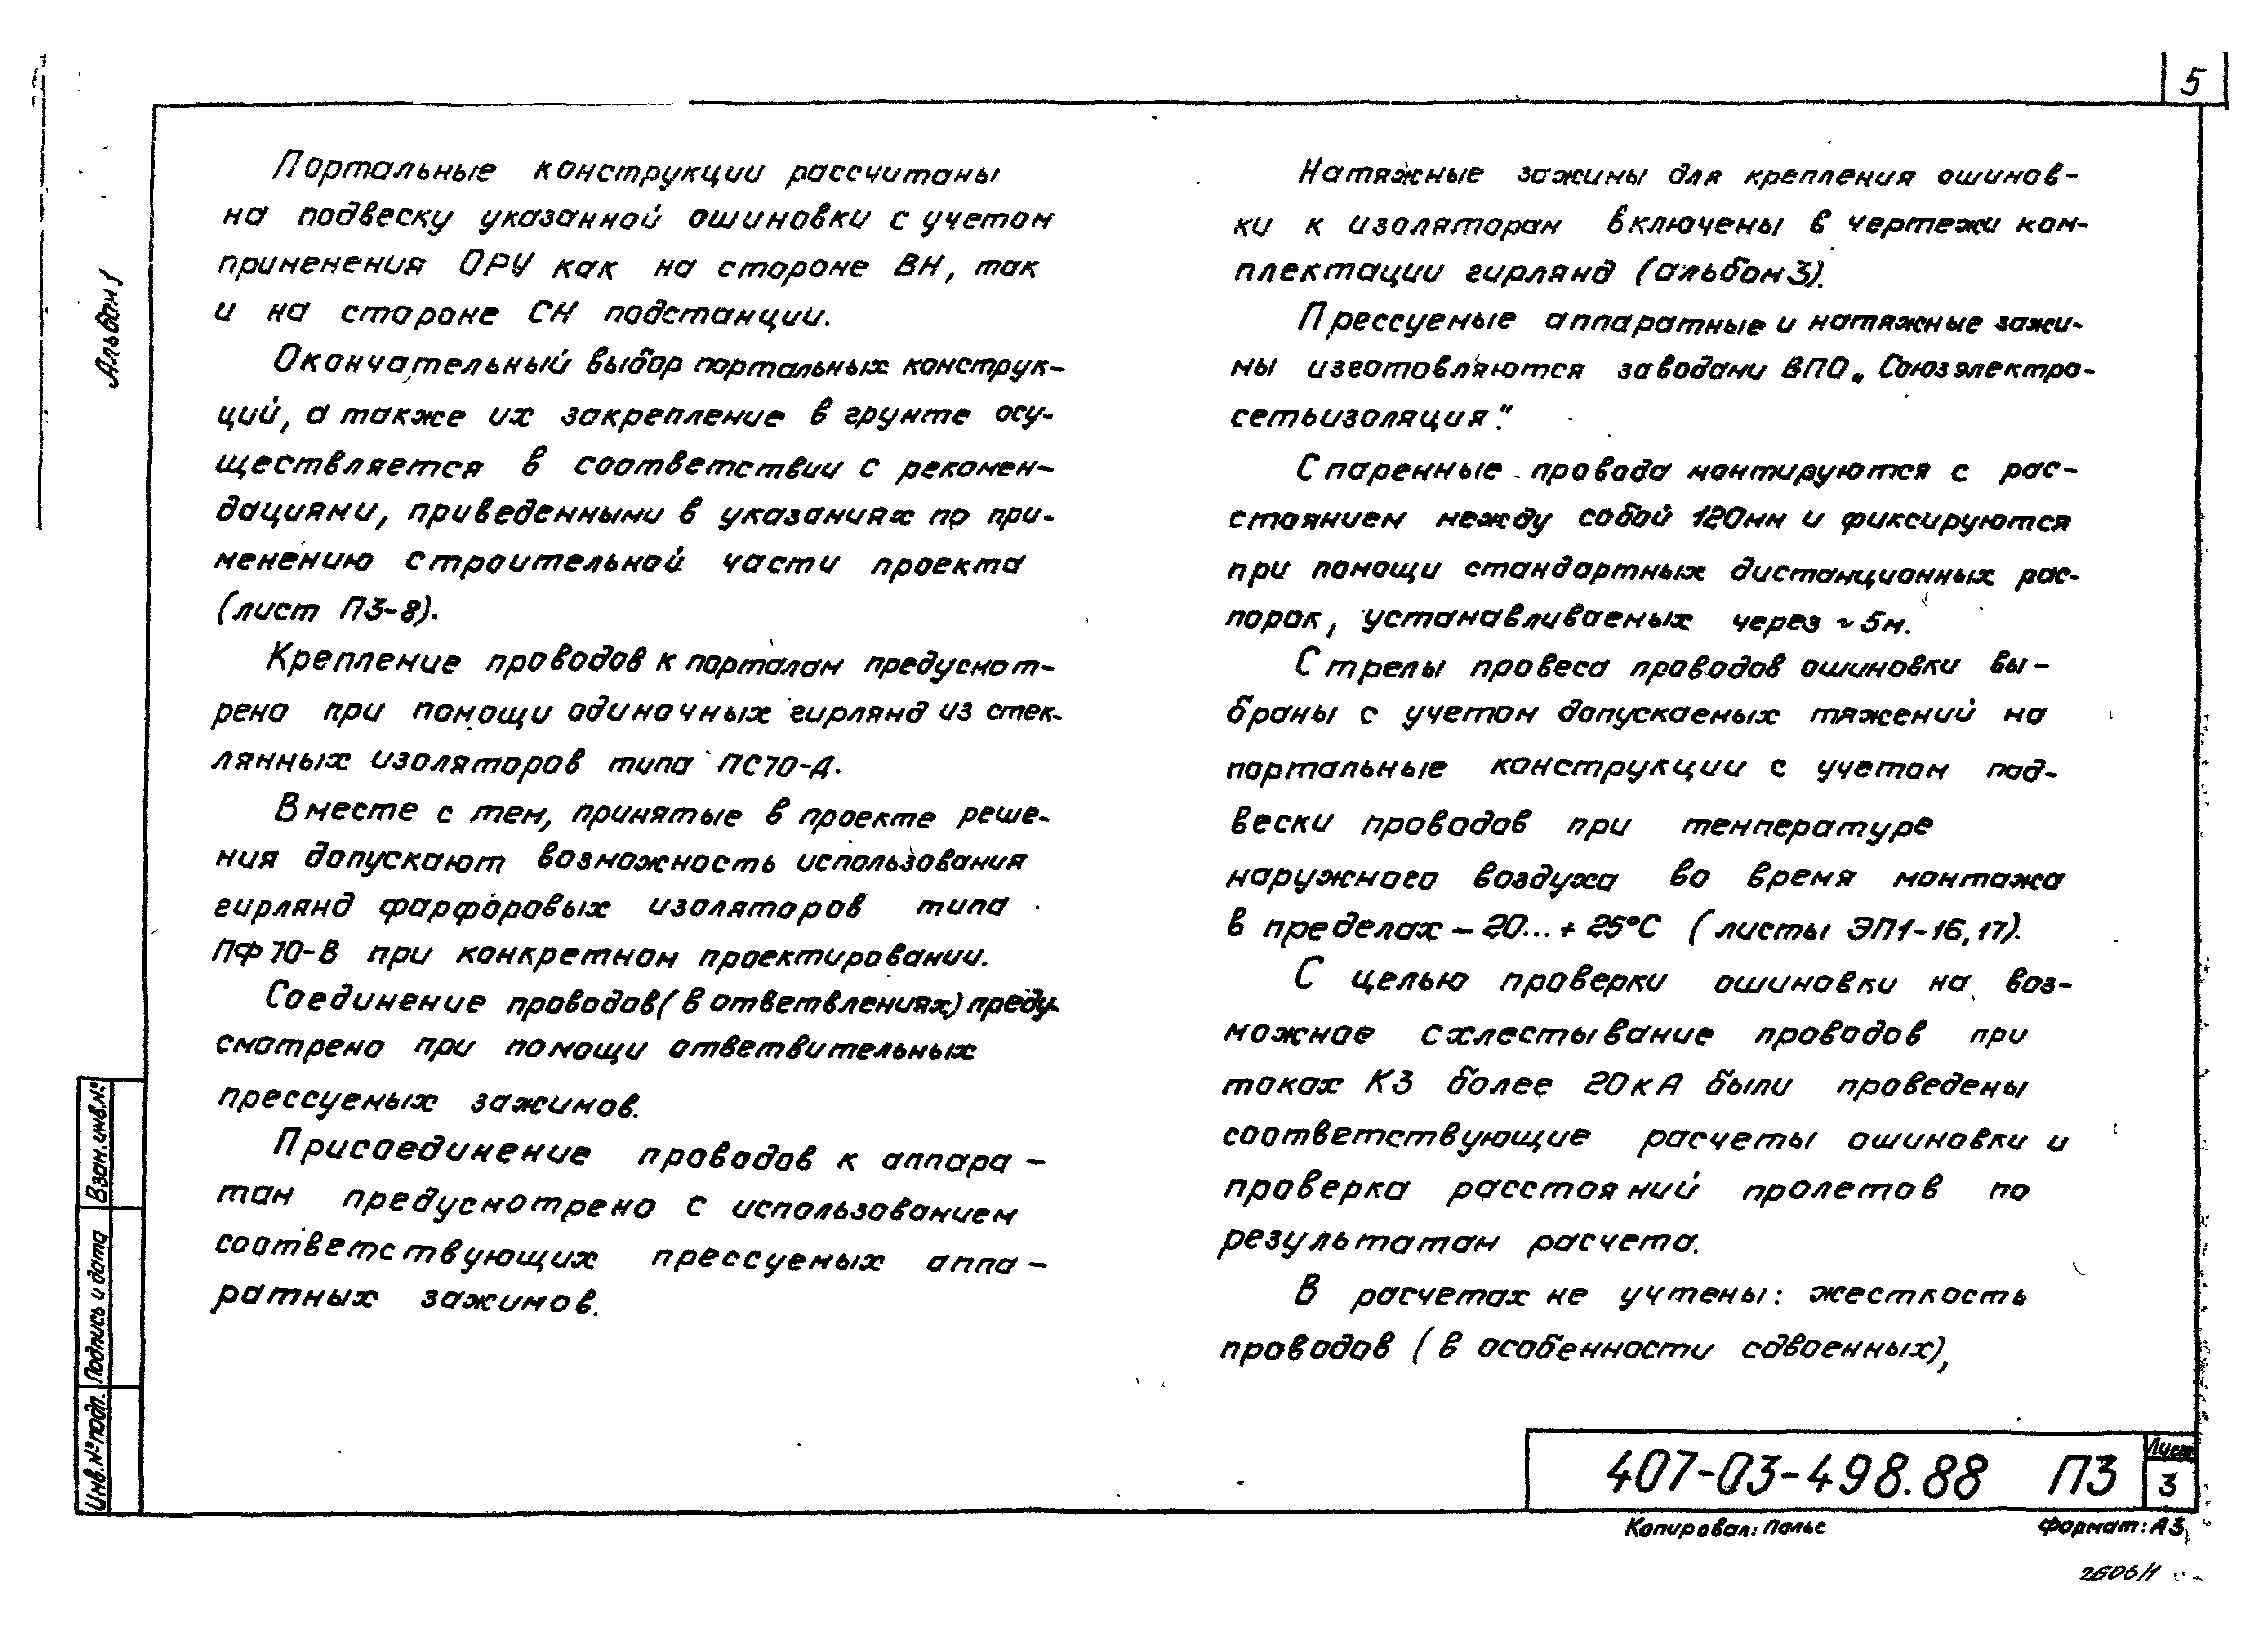 5
Альбом 1
Портальные конструкции рассчитаны
на подвеску указанной ошиновки с учетом
применения ОРУ как на стороне ВН, так
и на стороне СН подстанции.
Окончательный выбор портальных конструк-
ций, а также их закрепление в грунте осу-
ществляется в соответствии с рекомен-
дациями, приведенными в указаниях по при-
менению строительной части проекта
(лист ПЗ-8).
Крепление проводов к порталам предусмот-
рено при помощи одиночных гирлянд из стек-
лянных изоляторов типа ПС70-Д.
Вместе с тем, принятые в проекте реше-
ния допускают возможность использования
гирлянд фарфоровых изоляторов типа
ПФ70-В при конкретном проектировании.
Соединение проводов (в ответвлениях) преду-
смотрено при помощи ответвительных
прессуемых зажимов.
Присоединение проводов к аппара-
там предусмотрено с использованием
соответствующих прессуемых аппа-
ратных зажимов.
Натяжные зажимы для крепления ошинов-
ки к изоляторам включены в чертежи ком-
плектации гирлянд (альбом 3).
Прессуемые аппаратные и натяжные зажи-
мы изготовляются заводами ВПО „Союзэлектро-
сетьизоляция".
Спаренные провода монтируются с рас-
стоянием между собой 120мм и фиксируются
при помощи стандартных дистанционных рас-
порок, устанавливаемых через ~ 5м.
Стрелы провеса проводов ошиновки вы-
браны с учетом допускаемых тяжений на
портальные конструкции с учетом под-
вески проводов при температуре
наружного воздуха во время монтажа
в пределах -20...+25°С (листы ЭП1-16,17).
С целью проверки ошиновки на воз-
можное схлестывание проводов при
токах КЗ более 20кА были проведены
соответствующие расчеты ошиновки и
проверка расстояний пролетов по
результатам расчета.
В расчетах не учтены: жесткость
проводов (в особенности сдвоенных),
Взам.инв.№
Подпись и дата
Инв.№ подп.
407-03-498.88 ПЗ
Лист
3
Копировал: Полье Формат: А3
2606/1